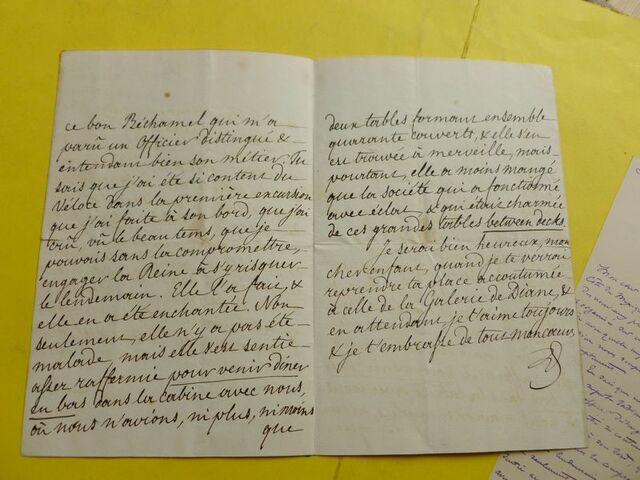 ce bon Béchamel qui m'a
parû un Officier distingué &
entendant bien son métier. Tu
sais que j'ai été si content du
Véloce dans la première excursion
que j'ai faite à son bord, que j'ai
crû, vû le beau tems, que je
pouvois sans la compromettre,
engager la Reine à s'y risquer
le lendemain. Elle l'a fait, &
elle en a été enchantée. Non
seulement, elle n'y a pas été
malade, mais elle s'est sentie
assez raffermie pour venir diner
en bas dans la cabine avec nous,
où nous n'avions, ni plus, ni moins
que
deux tables formant ensemble
quarante couverts, & elle s'en
est trouvée à merveille, mais
pourtant, elle a moins mangé
que la société qui a fonctionné
avec éclat, & qui étoit charmée
de ces grandes tables between decks.
Je serai bien heureux, mon
cher enfant, quand je te verrai
reprendre ta place accoutumée
à celle de la Galerie de Diane, &
en attendant je t'aime toujours
& je t'embrasse de tout mon cœur